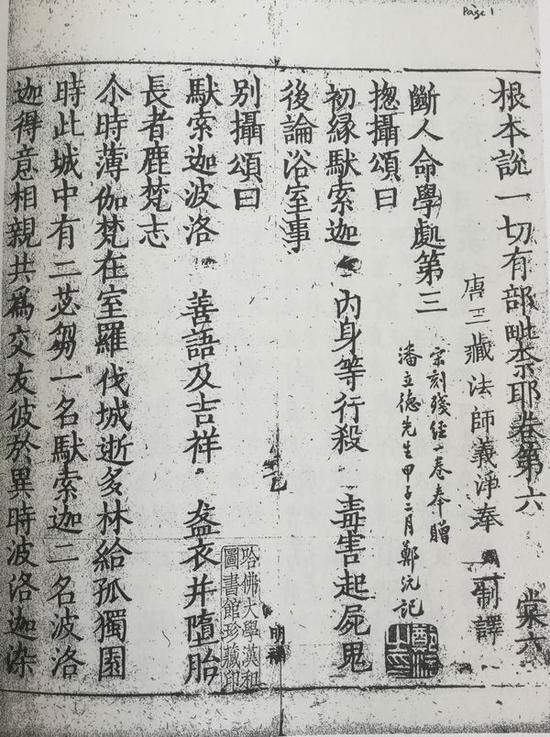 Page 1
根本說一切有部毗柰耶卷第六
棠六
唐三藏法師義淨奉
制譯
斷人命學處第三
宗刻殘經一卷奉贈
潘立德先生甲子二月鄭沅記
揔攝頌曰
初緣馱索迦
內身等行殺
毒害起屍鬼
後論浴室事
別攝頌曰
馱索迦波洛
善語及吉祥
盋衣并墮胎
長者鹿梵志
尒時薄伽梵在室羅伐城逝多林給孤獨園
時此城中有二苾芻一名馱索迦二名波洛
迦得意相親共為交友彼於異時波洛迦染
哈佛大學漢和
圖書館珍藏印